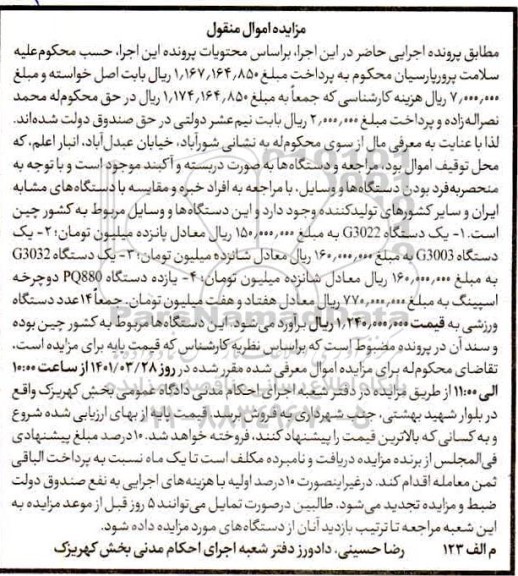 مزایده اموال منقول
مطابق پرونده اجرایی حاضر در این اجرا، براساس محتویات پرونده این اجرا، حسب محکوم‌علیه
سلامت پرور پارسیان محکوم به پرداخت مبلغ ۱٫۱۶۷٫۱۶۴٫۸۵۰ ریال بابت اصل خواسته و مبلغ
۷٫۰۰۰٫۰۰۰ ریال هزینه کارشناسی که جمعاً به مبلغ ۱٫۱۷۴٫۱۶۴٫۸۵۰ ریال در حق محکوم‌له محمد
نصراله‌زاده و پرداخت مبلغ ۲٫۰۰۰٫۰۰۰ ریال بابت نیم‌عشر دولتی در حق صندوق دولت شده‌اند.
لذا با عنایت به معرفی مال از سوی محکوم‌له به نشانی شورآباد، خیابان عبدل‌آباد، انبار اعلم، که
محل توقیف اموال بود، مراجعه و دستگاه‌ها به صورت دربسته و آکبند موجود است و با توجه به
منحصربه‌فرد بودن دستگاه‌ها و وسایل، با مراجعه به افراد خبره و مقایسه با دستگاه‌های مشابه
ایران و سایر کشورهای تولیدکننده وجود دارد و این دستگاه‌ها و وسایل مربوط به کشور چین
است. ۱- یک دستگاه G3022 به مبلغ ۱۵۰٫۰۰۰٫۰۰۰ ریال معادل پانزده میلیون تومان؛ ۲- یک
دستگاه G3003 به مبلغ ۱۶۰٫۰۰۰٫۰۰۰ ریال معادل شانزده میلیون تومان؛ ۳- یک دستگاه G3032
به مبلغ ۱۶۰٫۰۰۰٫۰۰۰ ریال معادل شانزده میلیون تومان؛ ۴- یازده دستگاه PQ880 دوچرخه
اسپینگ به مبلغ ۷۷۰٫۰۰۰٫۰۰۰ ریال معادل هفتاد و هفت میلیون تومان. جمعاً ۱۴ عدد دستگاه
ورزشی به قیمت ۱٫۲۴۰٫۰۰۰٫۰۰۰ ریال برآورد می‌شود. این دستگاه‌ها مربوط به کشور چین بوده
و سند آن در پرونده مضبوط است که براساس نظریه کارشناس که قیمت پایه برای مزایده است،
تقاضای محکوم‌له برای مزایده اموال معرفی شده مقرر شده در روز ۱۴۰۱/۰۳/۲۸ از ساعت ۱۰:۰۰
الی ۱۱:۰۰ از طریق مزایده در دفتر شعبه اجرای احکام مدنی دادگاه عمومی بخش کهریزک واقع
در بلوار شهید بهشتی، جنب شهرداری به فروش برسد. قیمت پایه از بهای ارزیابی شده شروع
و به کسانی که بالاترین قیمت را پیشنهاد کنند، فروخته خواهد شد. ۱۰ درصد مبلغ پیشنهادی
فی‌المجلس از برنده مزایده دریافت و نامبرده مکلف است تا یک ماه نسبت به پرداخت الباقی
ثمن معامله اقدام کند. درغیراینصورت ۱۰ درصد اولیه با هزینه‌های اجرایی به نفع صندوق دولت
ضبط و مزایده تجدید می‌شود. طالبین درصورت تمایل می‌توانند ۵ روز قبل از موعد مزایده به
این شعبه مراجعه تا ترتیب بازدید آنان از دستگاه‌های مورد مزایده داده شود.
م الف ۱۲۳ رضا حسینی، دادورز دفتر شعبه اجرای احکام مدنی بخش کهریزک